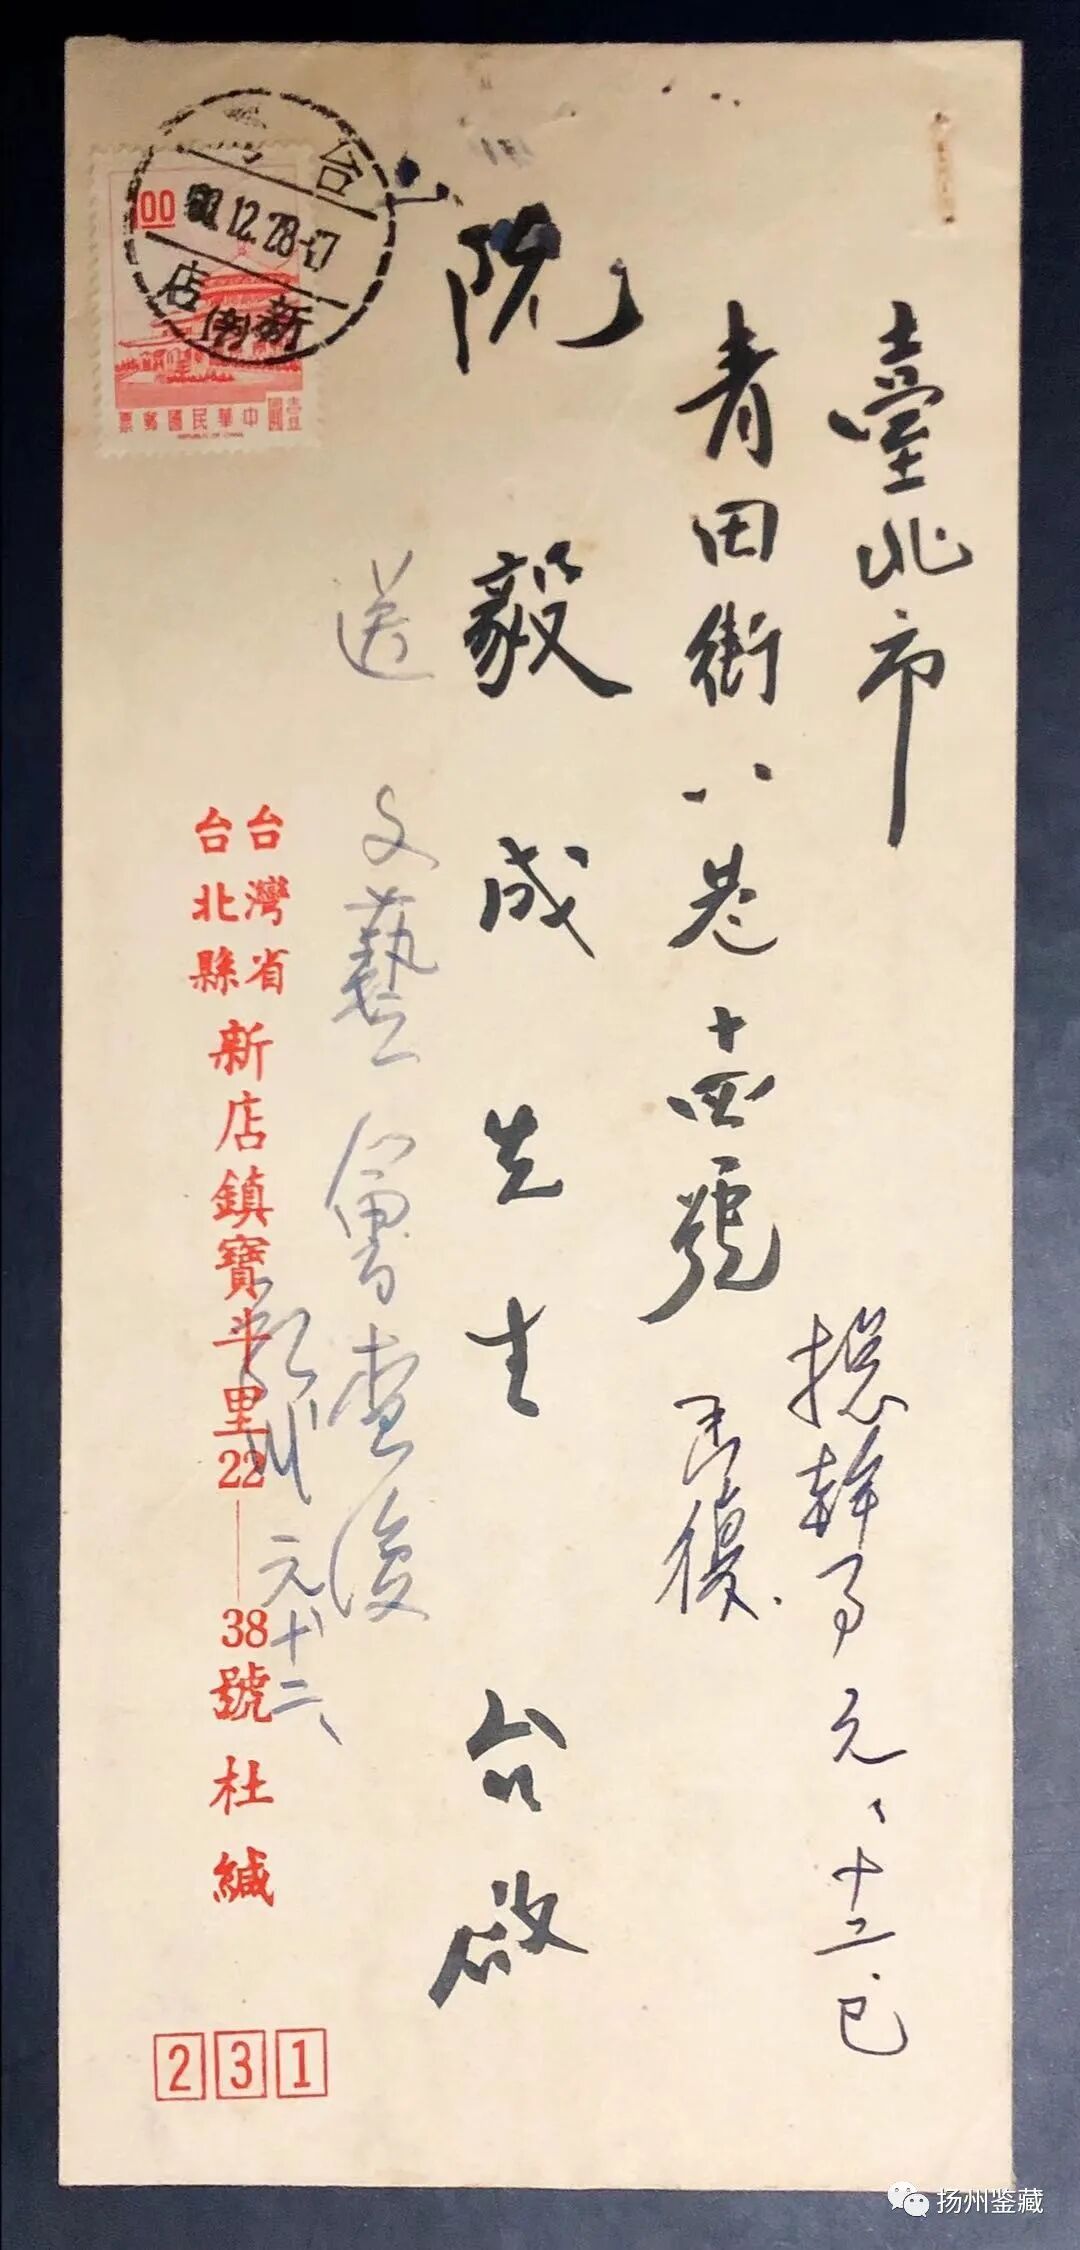 臺北市
青田街八巷十四號
阮毅成先生 台啟
總幹事元、十二、已
函復
送 文藝會查復
元十二、
台灣省
台北縣
新店鎮寶斗里22—38號杜緘
231
1.00
中華民國郵票
壹圓
REPUBLIC OF CHINA
台
.12.28
新店
扬州鉴藏